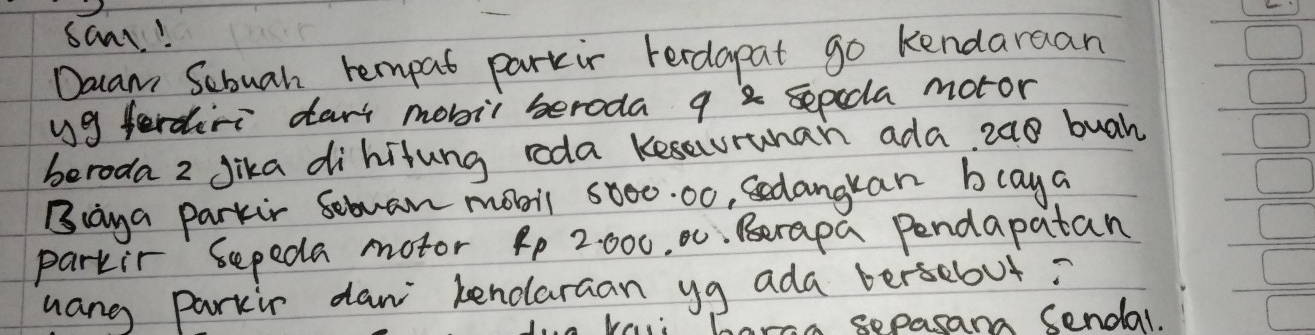 sam!
Dalam Sebuah tempat parkir terdapat 90 kendaraan
yg terdiri dari mobil beroda 4 & sepeda motor
beroda 2 Jika di hitung roda Keseluruhan ada 248 buah
Biaya parkir Sebuah mobil 5000.00, Sedangkan bcaya
parkir Sepeda motor Rp 2.000,00. Berapa Pendapatan
uang parkir dari kendaraan yg ada tersebut ?
dua kali harga sepasang Sendal.